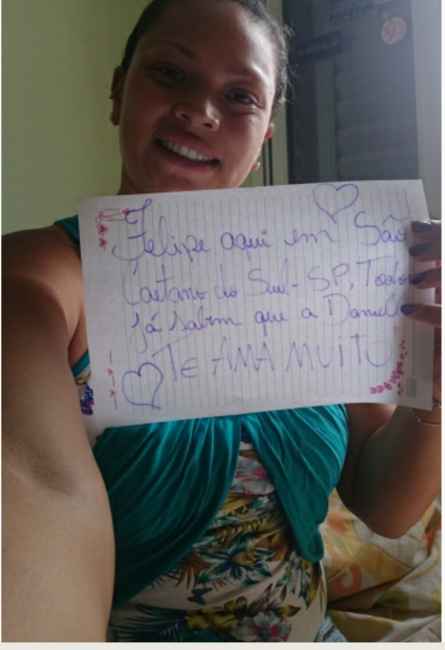 Felipe aqui em São
Caetano do Sul - SP, Todos
já sabem que a Daniela
TE AMA MUITO